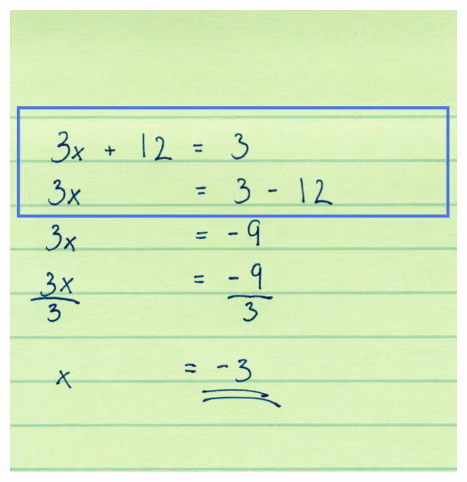 3x + 12 = 3
3x = 3 - 12
3x = -9
3x/3 = -9/3
x = -3